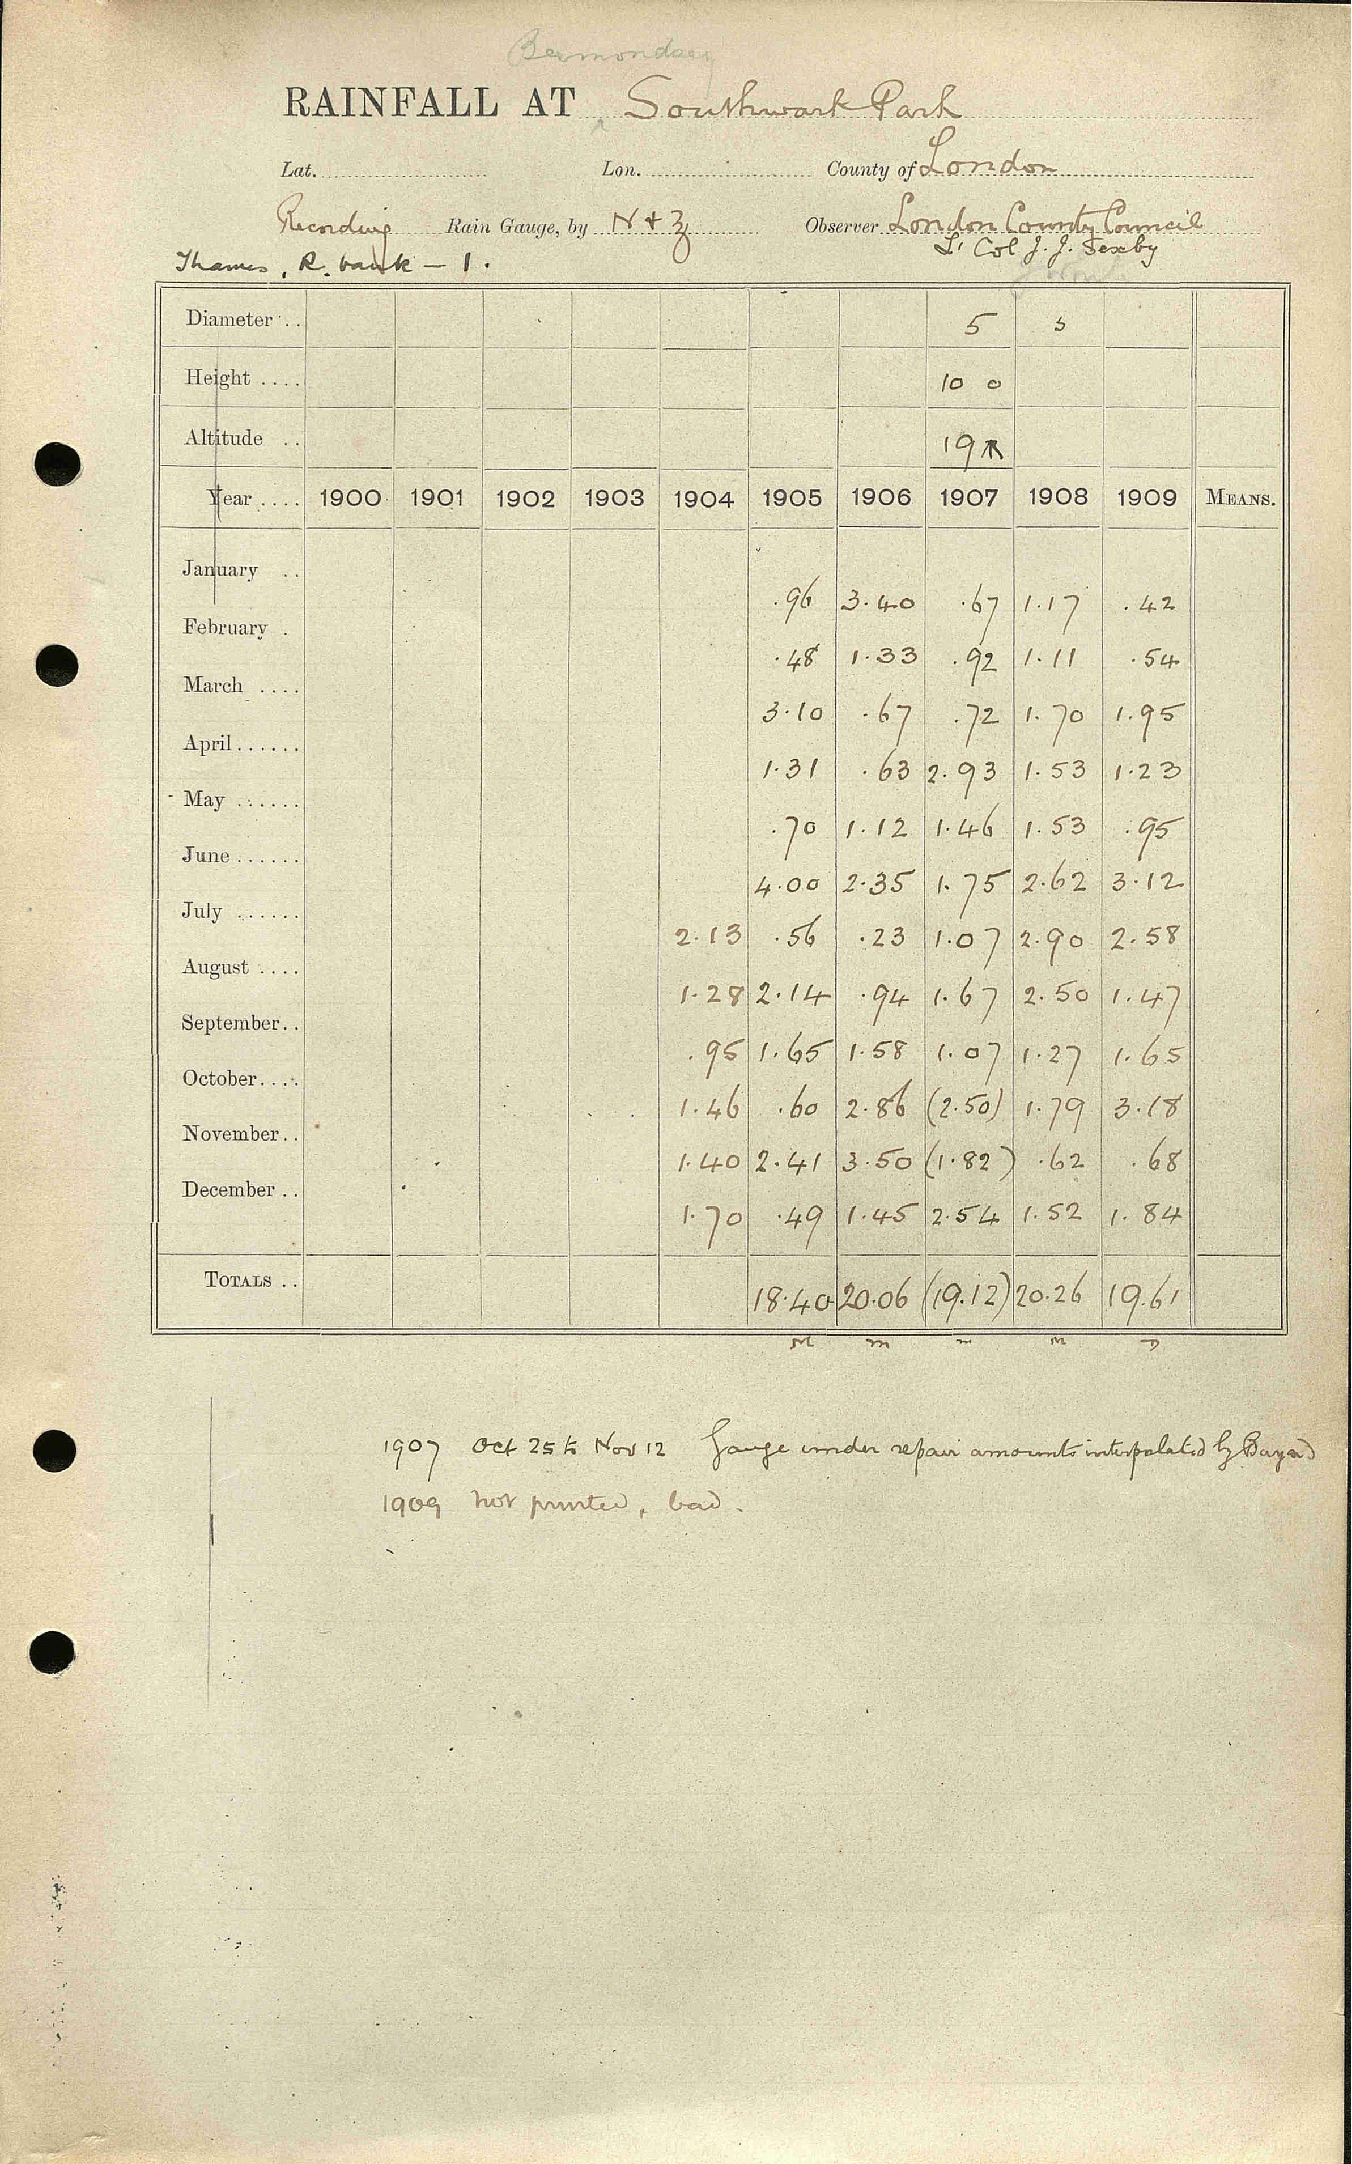 Bermondsey
RAINFALL AT Southwark Park
Lat. Lon. County of London
Recording Rain Gauge, by N & Z Observer London County Council
Thames, R. bank - 1. Lt Col J. J. Sexby
Diameter .. 5 5
Height .... 10 0
Altitude .. 19
Year .... 1900 1901 1902 1903 1904 1905 1906 1907 1908 1909 MEANS.
January .. .96 3.40 .67 1.17 .42
February . .48 1.33 .92 1.11 .54
March .... 3.10 .67 .72 1.70 1.95
April ...... 1.31 .63 2.93 1.53 1.23
May ...... .70 1.12 1.46 1.53 .95
June ...... 4.00 2.35 1.75 2.62 3.12
July ...... 2.13 .56 .23 1.07 2.90 2.58
August .... 1.28 2.14 .94 1.67 2.50 1.47
September.. .95 1.65 1.58 1.07 1.27 1.65
October.... 1.46 .60 2.86 (2.50) 1.79 3.18
November.. 1.40 2.41 3.50 (1.82) .62 .68
December .. 1.70 .49 1.45 2.54 1.52 1.84
TOTALS .. 18.40 20.06 (19.12) 20.26 19.61
M m m M D
1907 Oct 25 to Nov 12 Gauge under repair amounts interpolated by Bayard
1909 not printed, bad.